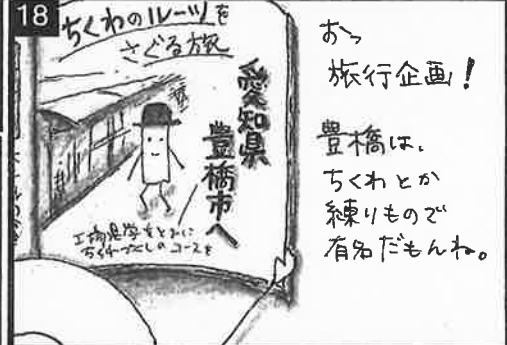 18
ちくわのルーツを
さぐる旅
愛知県
豊橋市へ
工場見学をともに
ちくわづくしのコースを
おっ
旅行企画!
豊橋は、
ちくわとか
練りもので
有名だもんね。